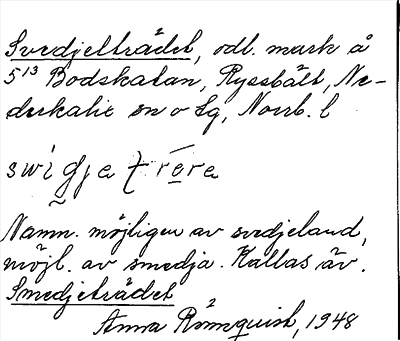 Svedjeträdet, odl. mark å
5¹³ Bodskatan, Ryssbält, Ne-
derkalix sn o Lg, Norrb. l
Namn. möjligen av svedjeland,
möjl. av smedja. Kallas äv.
Smedjeträdet
Anna Rönnquist, 1948